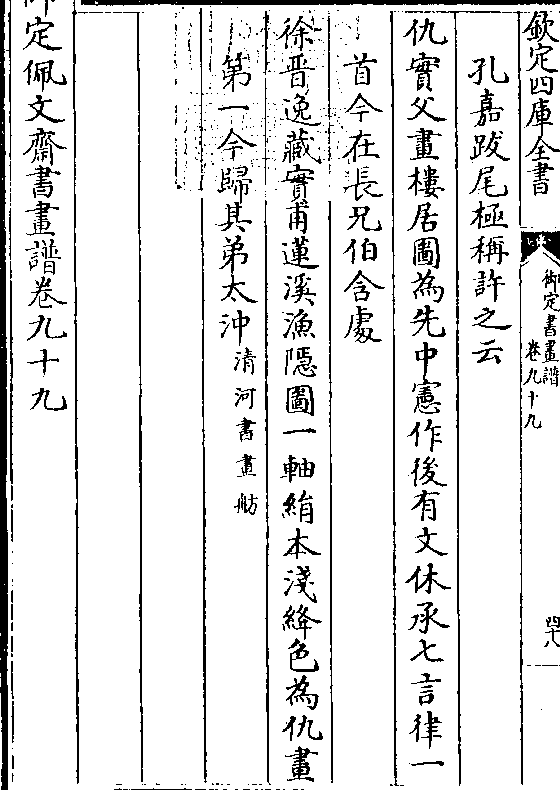 欽定四庫全書
御定書畫譜
卷九十九
四十八
孔嘉跋尾極稱許之云
仇實父畫樓居圖為先中憲作後有文休承七言律一
首今在長兄伯含處
徐晉逸藏實甫蓮溪漁隱圖一軸絹本淺絳色為仇畫
第一今歸其弟太沖清河書畫舫
御定佩文齋書畫譜卷九十九